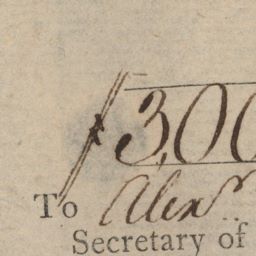 $3,00
To Alexr.
Secretary of